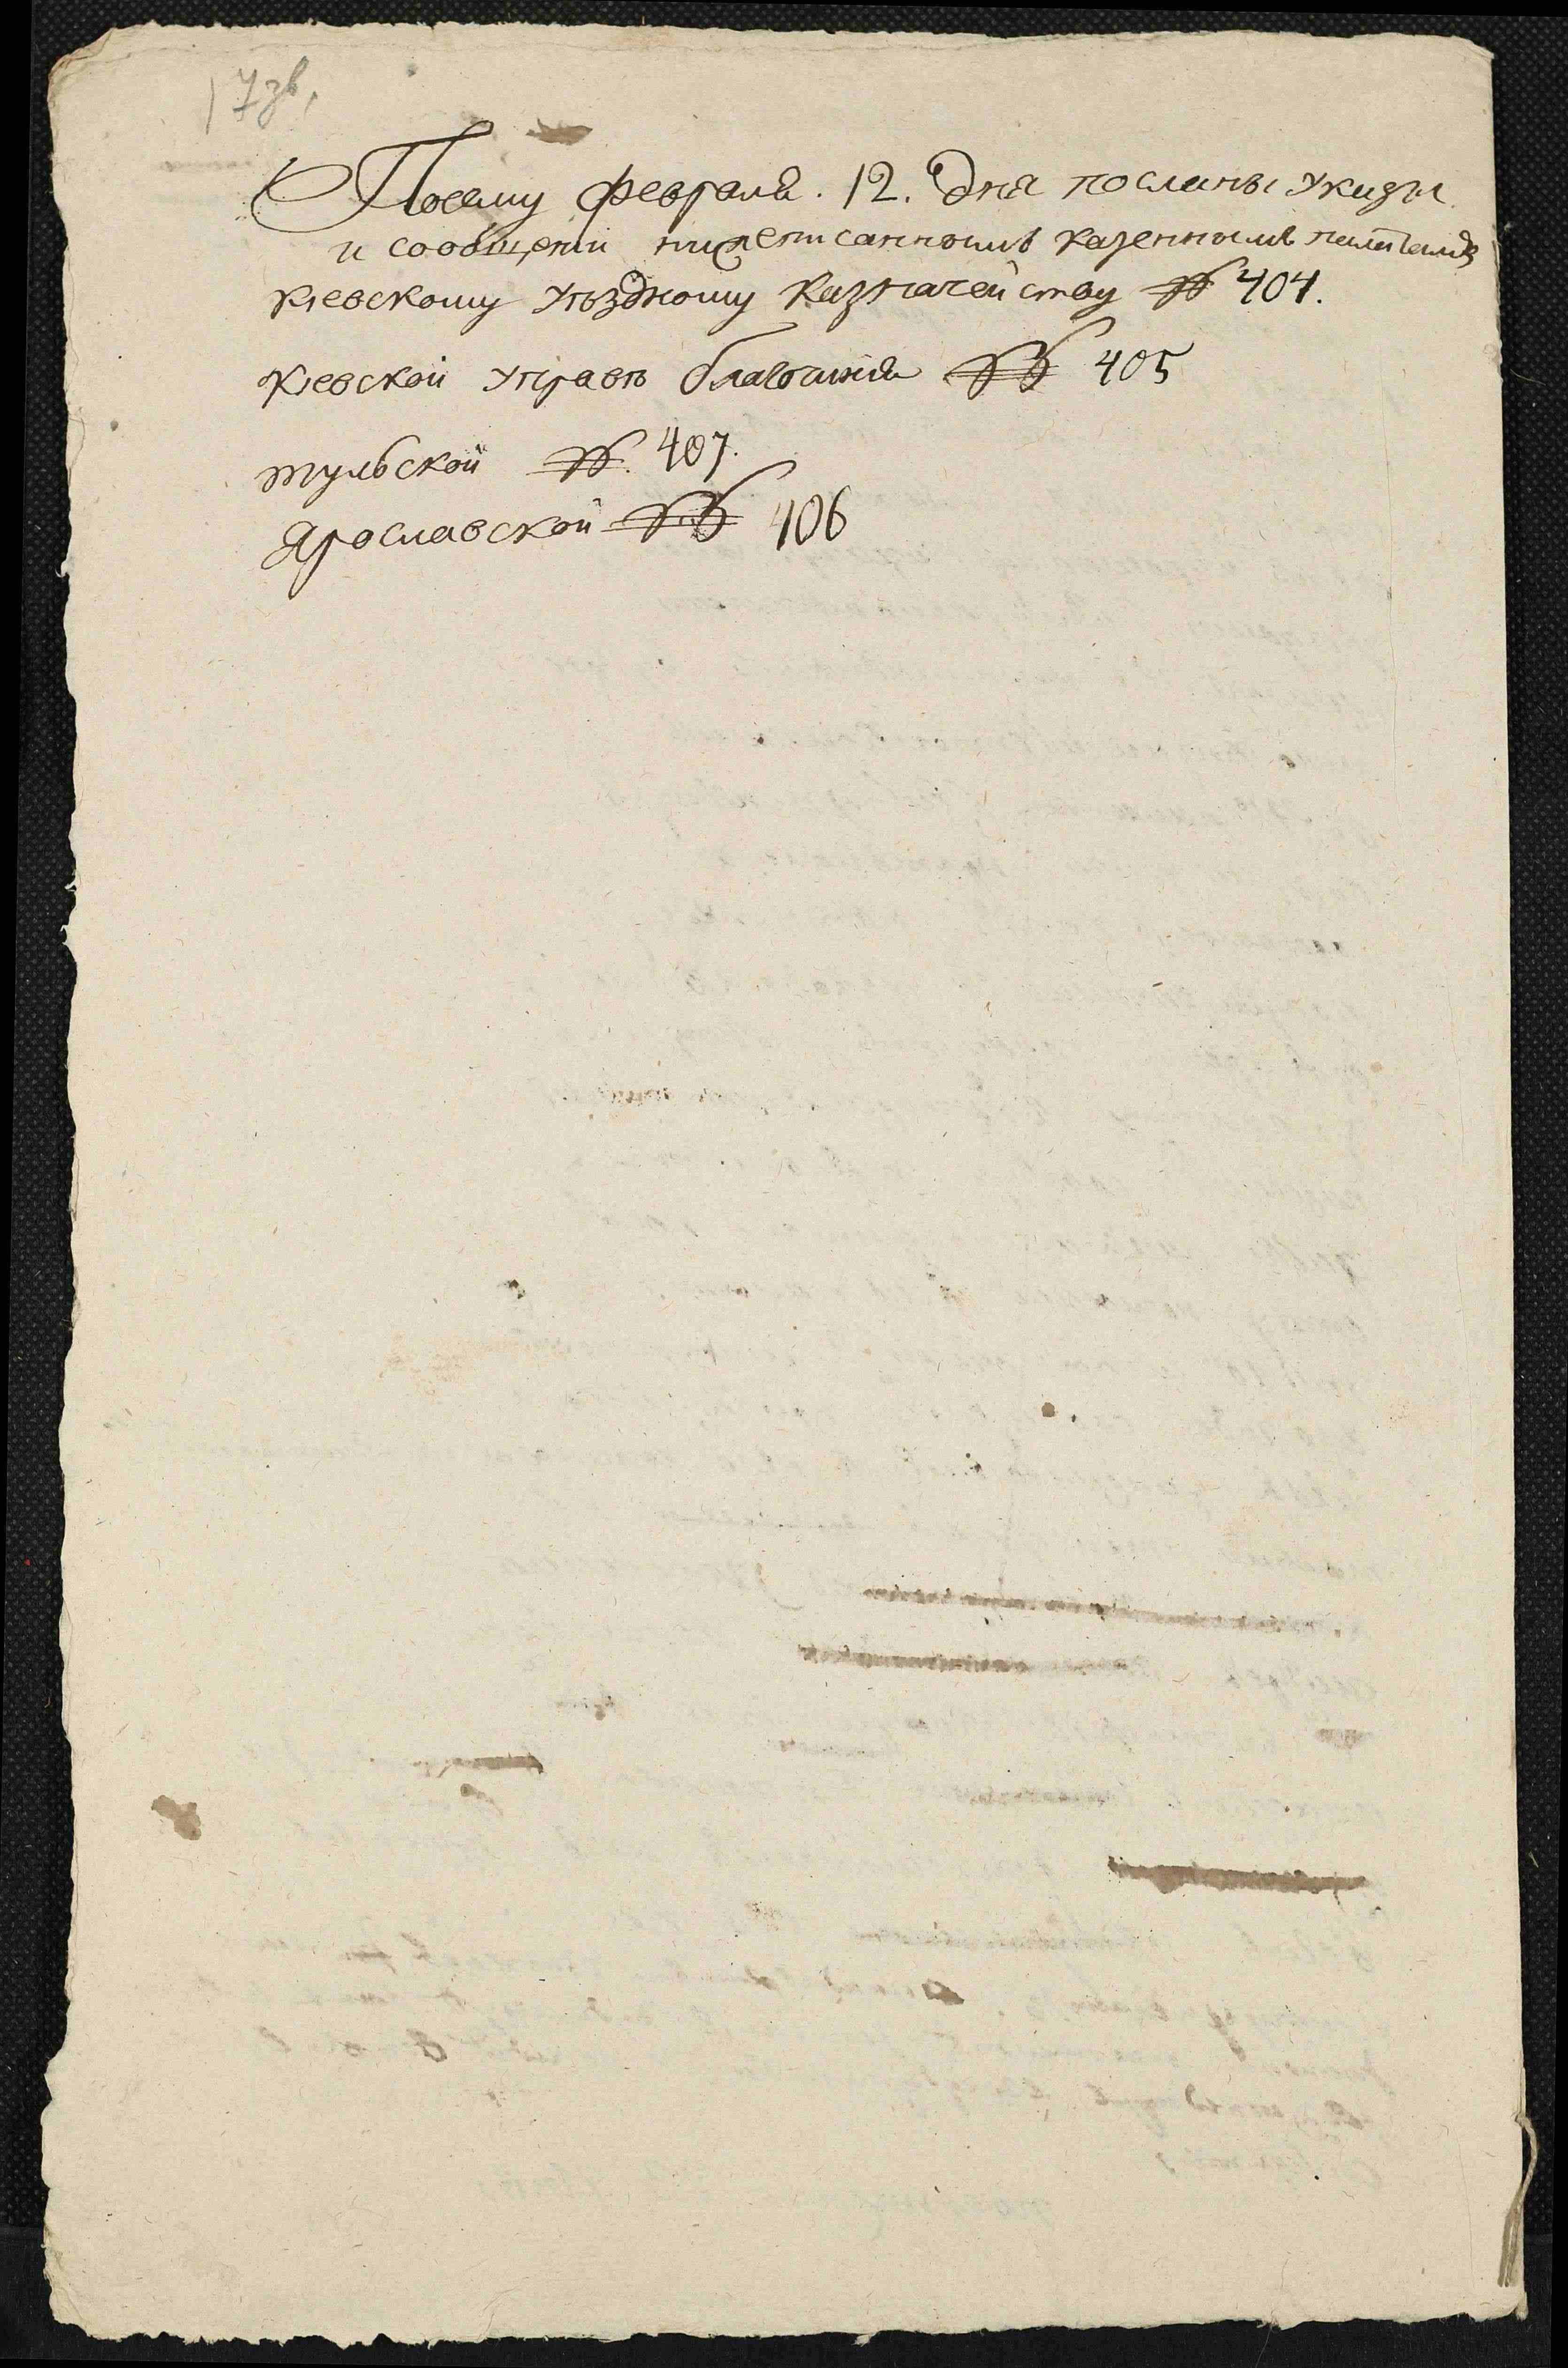 17зв.
Посему февраля. 12. дня посланы указы
и сообщении нижеписанномъ казеннымъ палатамъ
Киевскому уѣздному казначейству № 404.
Киевской управѣ благочиния № 405
тульской №. 407.
Ярославской № 406